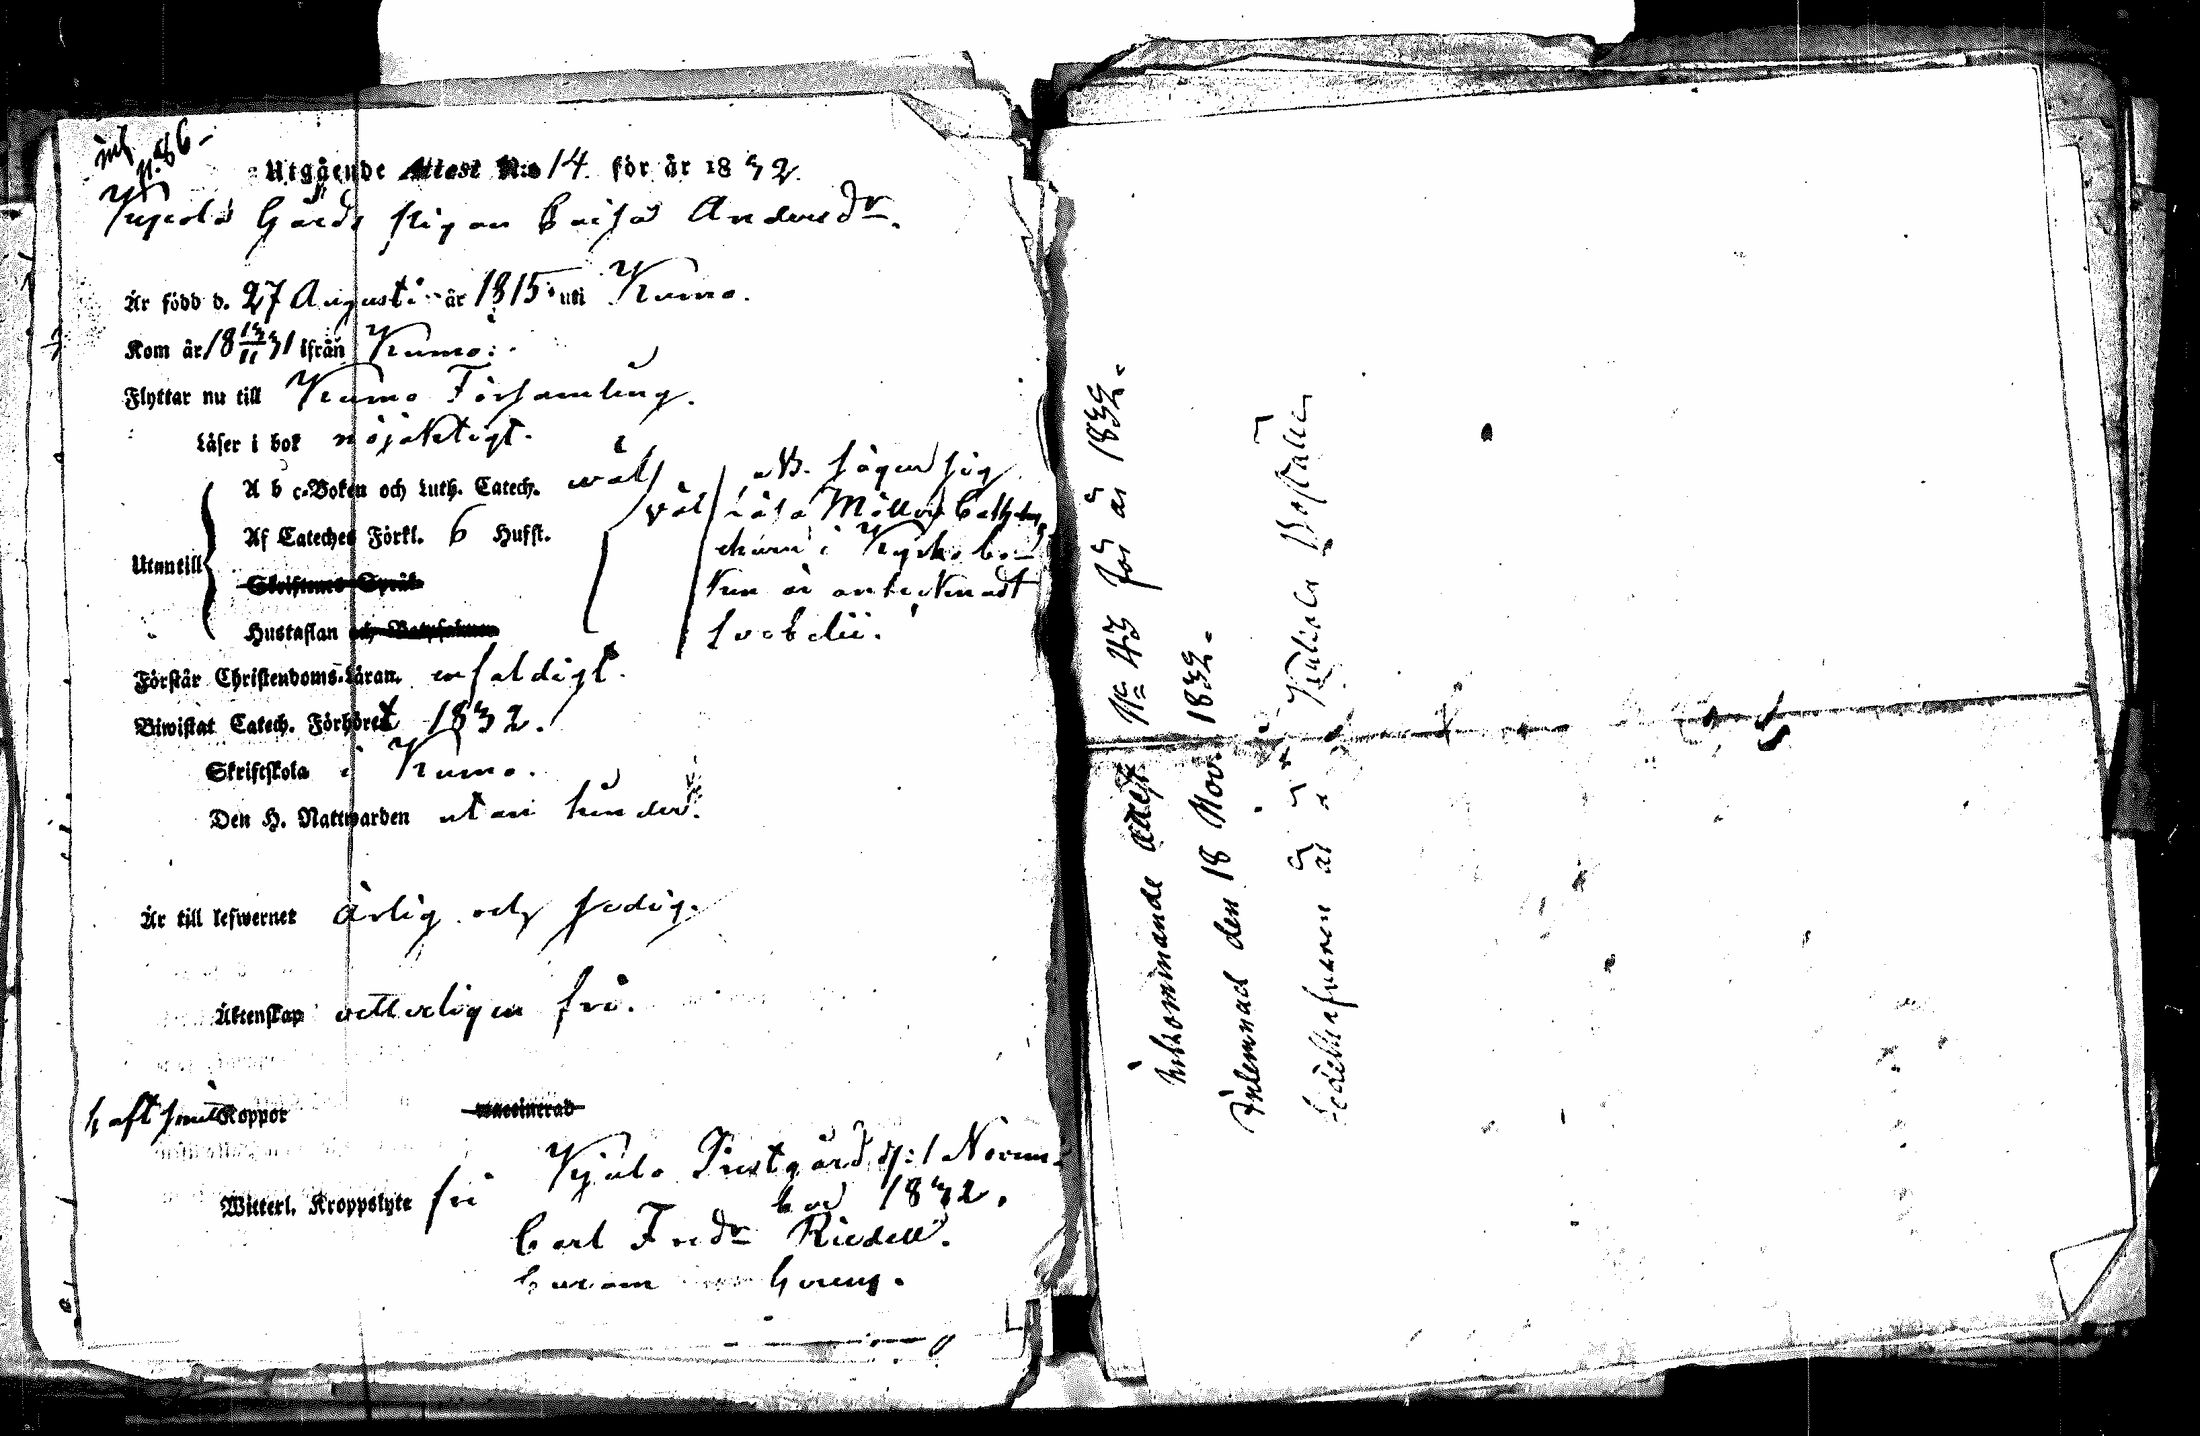 Utgående Attest N:o 14. för år 1832.
Gårds Pigan Caisa Andersdr.
Är född d. 27 Augusti år 1815 uti Kumo.
Kom år 18 13/11 31 ifrån Kumo.
Flyttar nu till Kumo Församling.
Läser i bok nöjaktigt.
A b c-Boken och Luth. Catech. wäl
Af Cateches Förkl. 6 Hufst. väl
Utantill
Skriftenes Språk
Hustaflan och Botpsalmen
NB. säger sig
Läsa Möllers
i Kyrkobo-
ken är antecknadt
Förstår Christendoms-Läran. enfaldigt.
Biwistat Catech. Förhöret 1832.
Skriftskola i Kumo.
Den H. Nattwarden utan hinder.
Är till lefwernet Ärlig och sedig.
Äktenskap vetterligen fri.
haft små Koppor vaccinerad
Witterl. Kroppslyte fri
Kjulo Prestgård d: 1 Novem-
ber 1832.
Carl Fredr Riedell.
Inkommande attest No 43 för år 1832.
Inlemnad den 18 Nov. 1832.